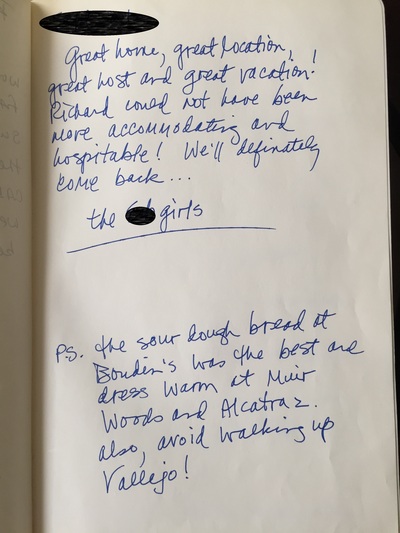 Great home, great location,
great host and great vacation!
Richard could not have been
more accommodating and
hospitable! We'll definately
come back...
the girls
PS. the sour dough bread at
Boudin's was the best and
dress warm at Muir
Woods and Alcatraz.
also, avoid walking up
Vallejo!